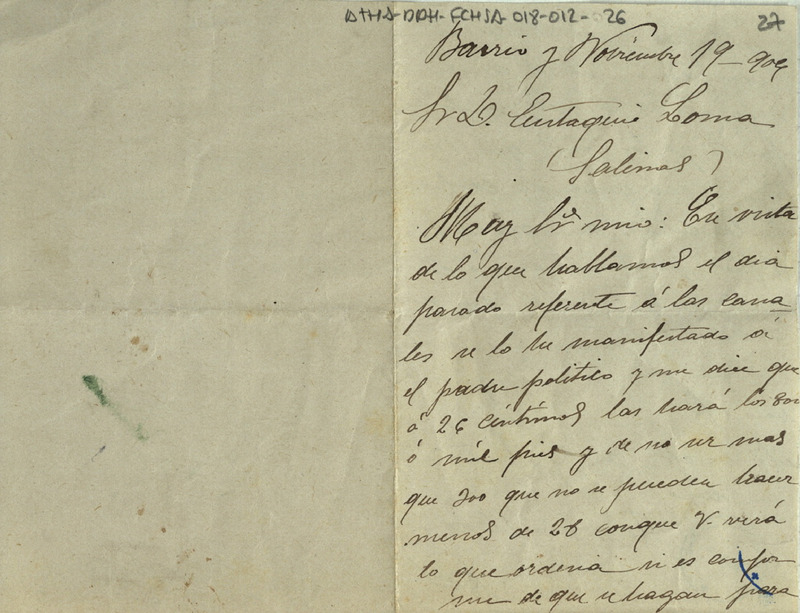 ATHA-DAH-FCHSA-018-012-26
27
Barrio y Noviembre 19-904
Sr D. Eustaquio Loma
(Salinas)
Muy Sr mio: En vista
de lo que hablamos el dia
pasado referente á las cana
les se lo he manifestado á
el padre politico y me dice que
á 26 céntimos las hará los 800
ó mil pies y de no ser mas
que 200 que no se pueden hacer
menos de 28 conque V. verá
lo que ordena si es confor
me de que se hagan para